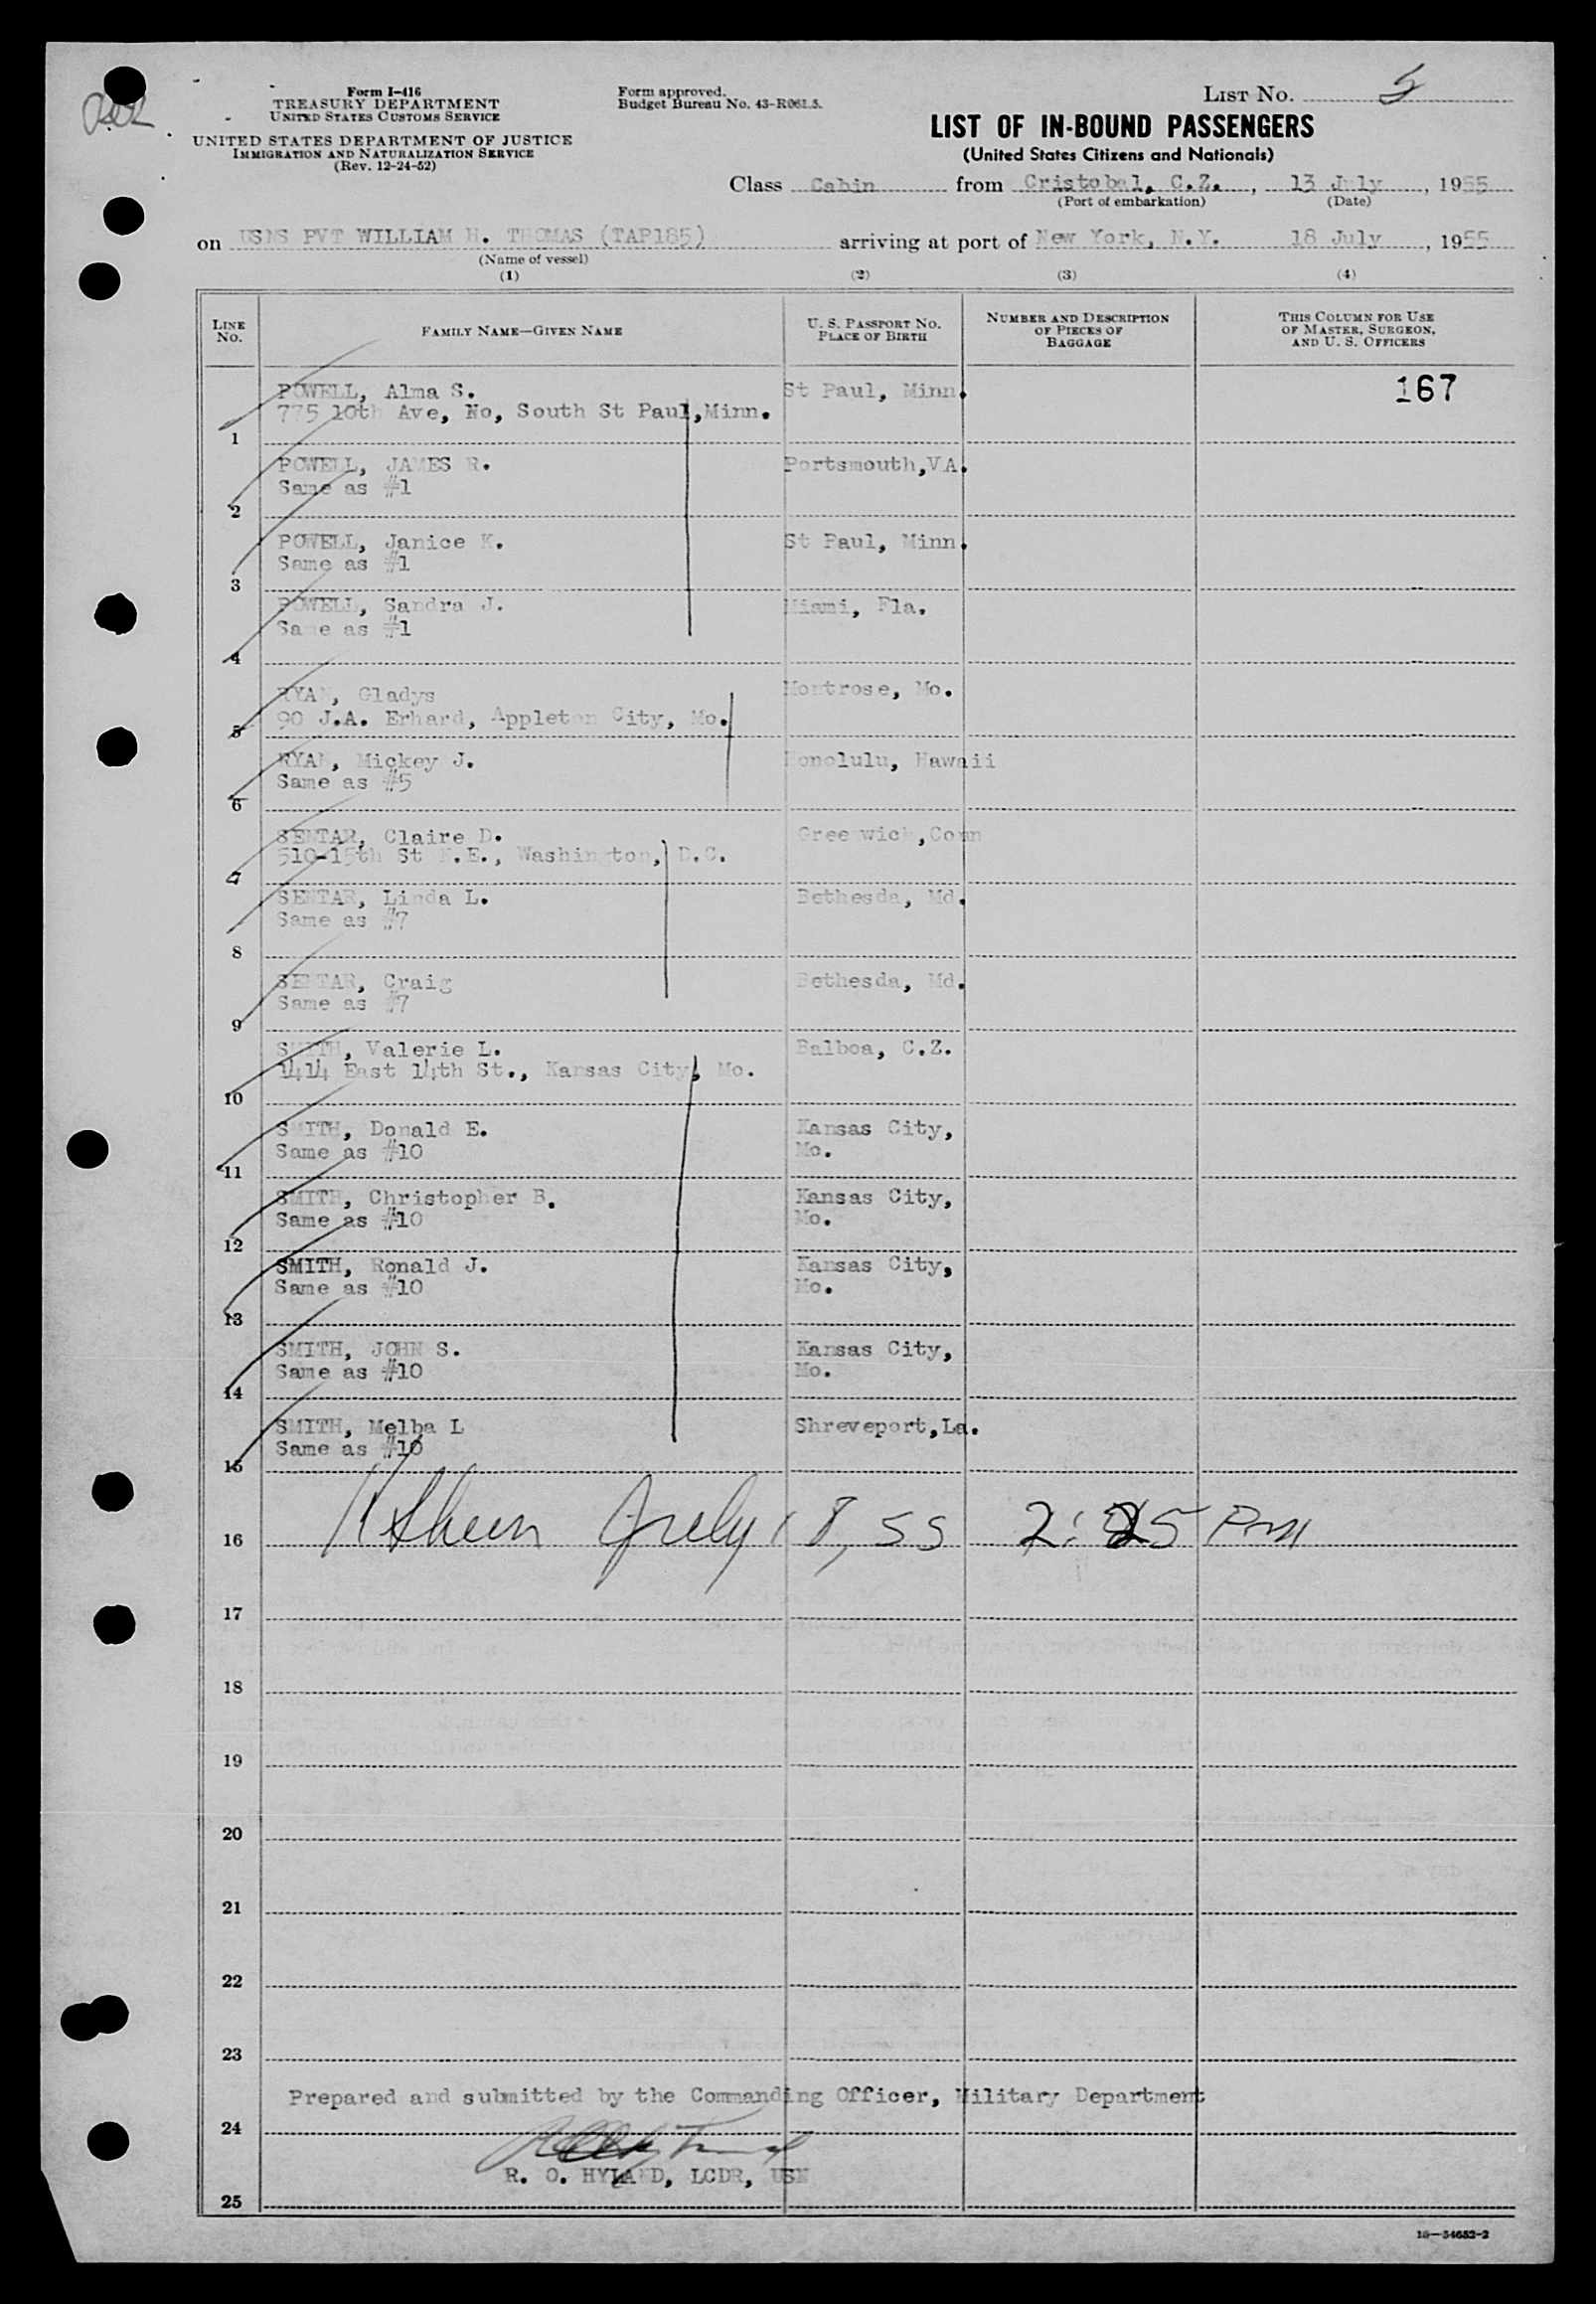 Form I-416
TREASURY DEPARTMENT
UNITED STATES CUSTOMS SERVICE
UNITED STATES DEPARTMENT OF JUSTICE
IMMIGRATION AND NATURALIZATION SERVICE
(Rev. 12-24-52)
Form approved.
Budget Bureau No. 43-R061.5.
LIST NO. 5
LIST OF IN-BOUND PASSENGERS
(United States Citizens and Nationals)
Class Cabin from Cristobal, C.Z., 13 July, 1955
(Port of embarkation) (Date)
on USNS PVT WILLIAM H. THOMAS (TAP185) arriving at port of New York, N.Y. 18 July, 1955
(Name of vessel)
(1) (2) (3) (4)
LINE NO.
FAMILY NAME—GIVEN NAME
U. S. PASSPORT NO.
PLACE OF BIRTH
NUMBER AND DESCRIPTION
OF PIECES OF
BAGGAGE
THIS COLUMN FOR USE
OF MASTER, SURGEON,
AND U. S. OFFICERS
167
POWELL, Alma S. St Paul, Minn.
775 10th Ave, No, South St Paul,Minn.
1
POWELL, JAMES R. Portsmouth,VA.
Same as #1
2
POWELL, Janice K. St Paul, Minn.
Same as #1
3
POWELL, Sandra J. Miami, Fla.
Same as #1
4
RYAN, Gladys Montrose, Mo.
90 J.A. Erhard, Appleton City, Mo.
5
RYAN, Mickey J. Honolulu, Hawaii
Same as #5
6
SENTAR, Claire D. Greenwich,Conn
510-15th St N.E., Washington, D.C.
7
SENTAR, Linda L. Bethesda, Md.
Same as #7
8
SENTAR, Craig Bethesda, Md.
Same as #7
9
SMITH, Valerie L. Balboa, C.Z.
1414 East 14th St., Kansas City, Mo.
10
SMITH, Donald E. Kansas City,
Same as #10 Mo.
11
SMITH, Christopher B. Kansas City,
Same as #10 Mo.
12
SMITH, Ronald J. Kansas City,
Same as #10 Mo.
13
SMITH, JOHN S. Kansas City,
Same as #10 Mo.
14
SMITH, Melba L Shreveport,La.
Same as #10
15
16 July 18, 55 2:25 PM
17
18
19
20
21
22
23
Prepared and submitted by the Commanding Officer, Military Department
24
R. O. HYLAND, LCDR, USN
25
16—54652-2